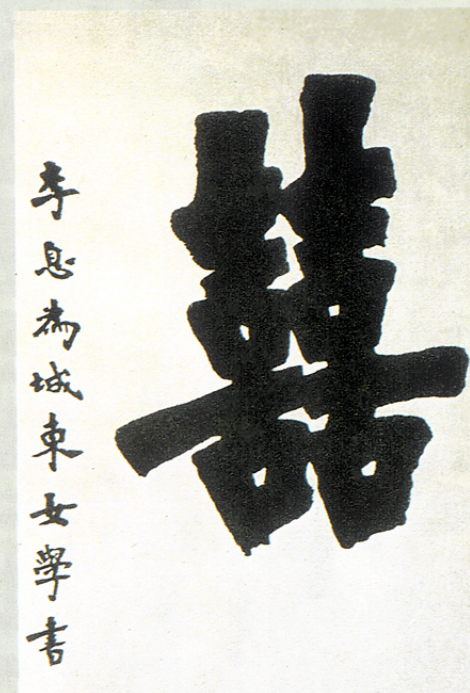 囍
李息為城東女學書